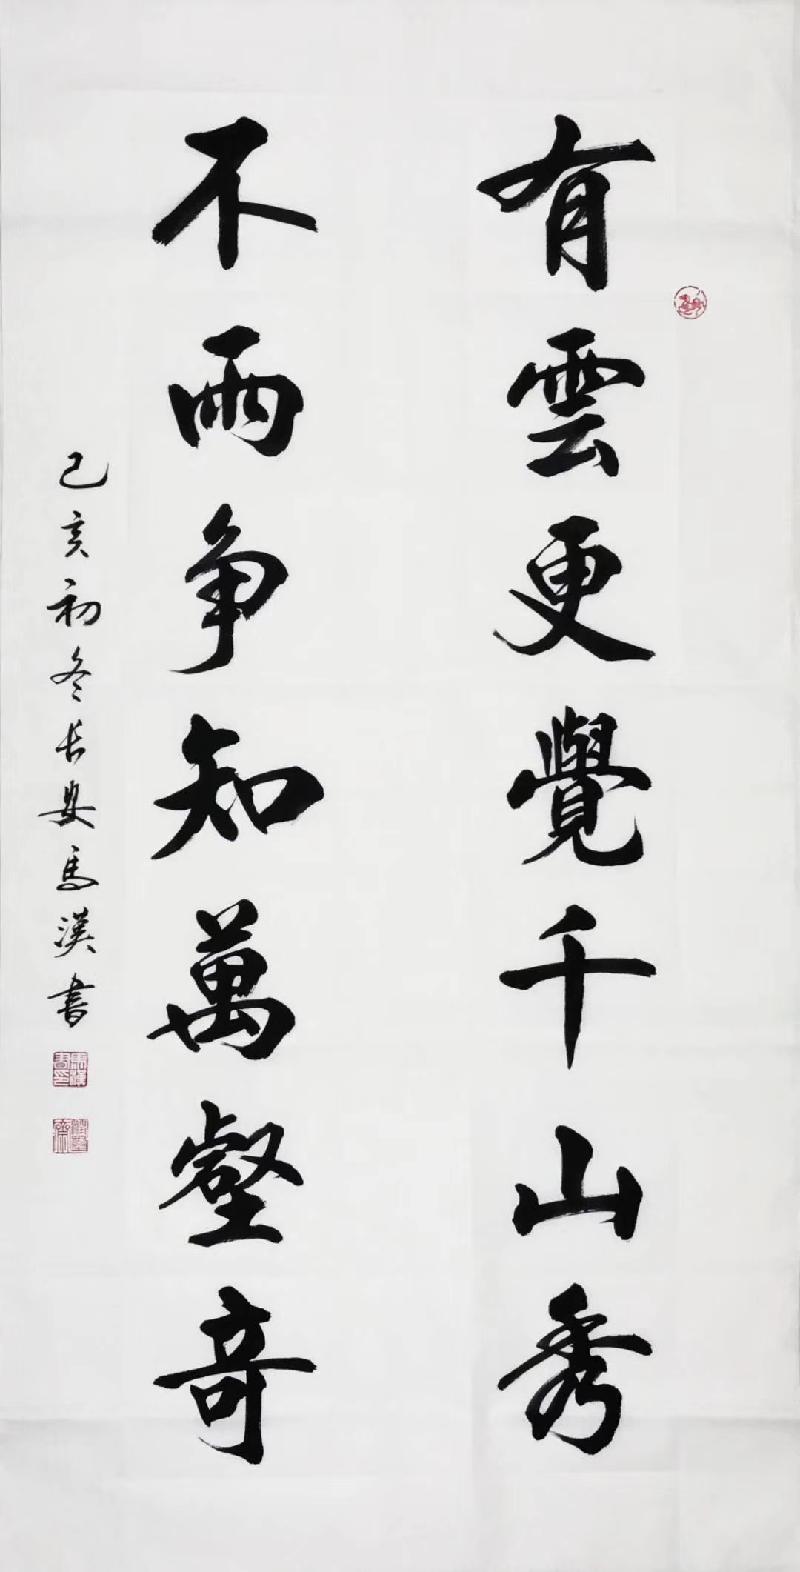 有雲更覺千山秀
不雨争知萬壑奇
己亥初冬長安馬漢書